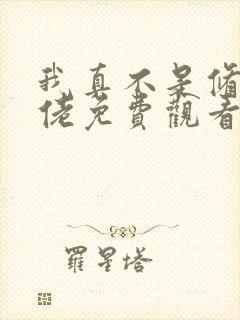 我真不是脩
佬免費觀看
羅星塔